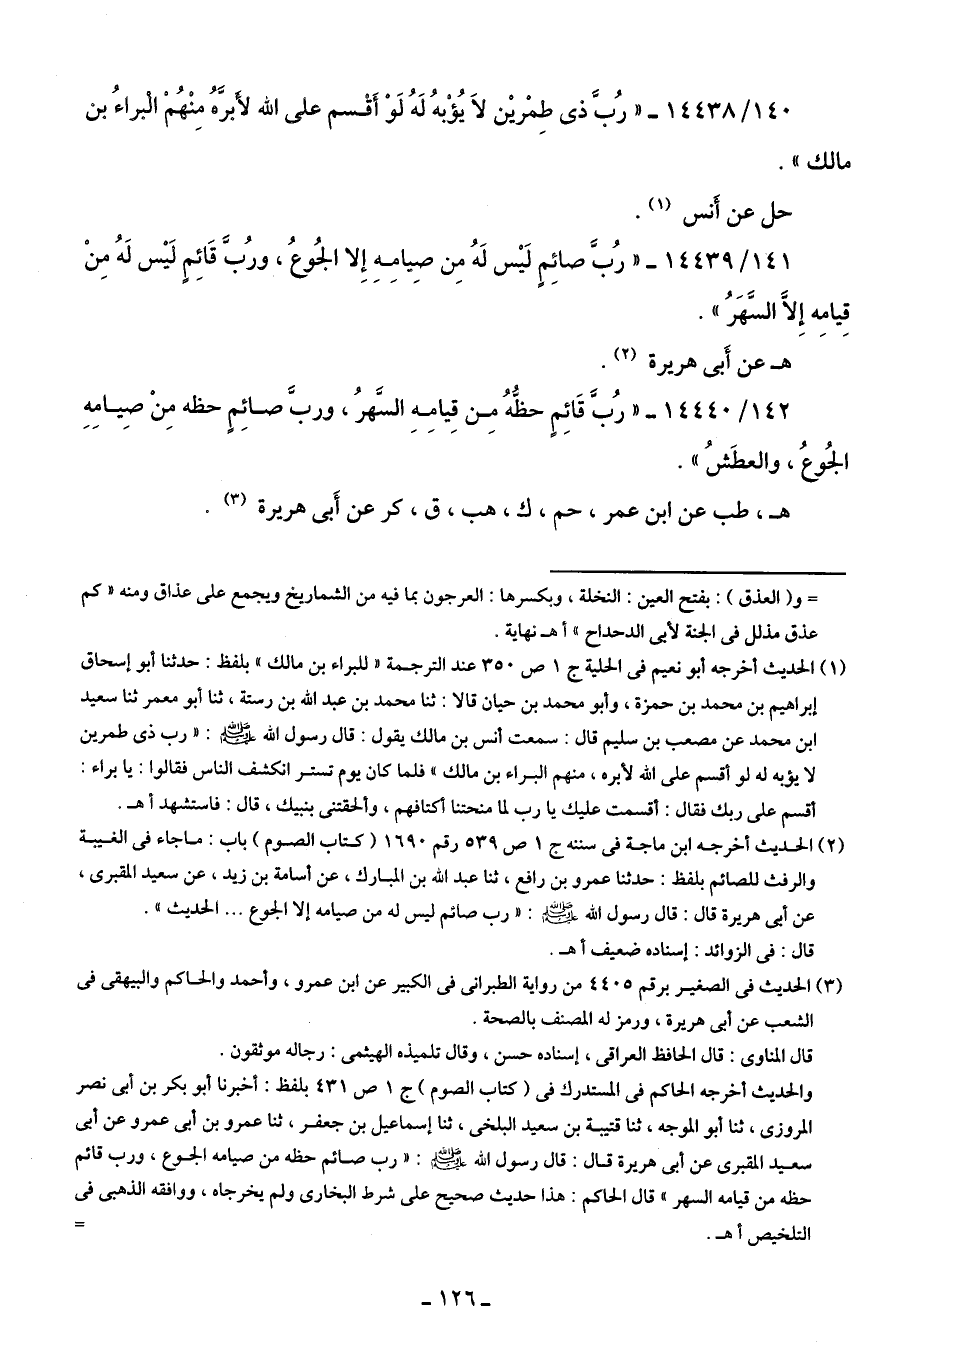 ١٤٤٣٨/١٤٠ ـ « رُبَّ ذى طِمْرَيْن لاَ يُؤْبهُ لَهُ لَوْ أَقْسم على الله لأَبرَّهُ مِنْهُمْ الْبراءُ بن
مالك » .
حل عن أَنس (١) .
١٤٤٣٩/١٤١ ـ « رُبَّ صائِمٍ لَيْس لَهُ مِن صِيامِهِ إِلا الجُوعُ ، ورُبَّ قَائِمٍ لَيْس لَهُ مِنْ
قِيامِه إِلاَّ السَّهَرُ » .
هـ عن أَبى هريرة (٢) .
١٤٤٤٠/١٤٢ ـ « رُبَّ قَائِمٍ حظُّهُ مِـن قِيامِـهِ السَّهرُ ، وربَّ صـائِمٍ حظه مِنْ صِيـامِهِ
الجُوعُ ، والعطَشُ » .
هـ ، طب عن ابن عمر ، حم ، ك ، هب ، ق ، كر عن أَبى هريرة (٣) .
= و( العذق ) : بفتح العين : النخلة ، وبكسرها : العرجون بما فيه من الشماريخ ويجمع على عذاق ومنه « كم
عذق مذلل فى الجنة لأبى الدحداح » أ هـ نهاية .
(١) الحديث أخرجه أبو نعيم فى الحلية ج ١ ص ٣٥٠ عند الترجمة « للبراء بن مالك » بلفظ : حدثنا أبو إسحاق
إبراهيم بن محمد بن حمزة ، وأبو محمد بن حيان قالا : ثنا محمد بن عبد الله بن رستة ، ثنا أبو معمر ثنا سعيد
ابن محمد عن مصعب بن سليم قال : سمعت أنس بن مالك يقول : قال رسول الله ﷺ : « رب ذى طمرين
لا يؤبه له لو أقسم على الله لأبره ، منهم البـراء بن مالك » فلما كان يوم تستـر انكشف الناس فقالوا : يا براء :
أقسم على ربك فقال : أقسمت عليك يا رب لما منحتنا أكتافهم ، وألحقتنى بنبيك ، قال : فاستشهد أ هـ .
(٢) الحديث أخرجـه ابن ماجـة فى سننه ج ١ ص ٥٣٩ رقم ١٦٩٠ ( كـتاب الصـوم ) باب : مـاجاء فى الغـيبة
والرفث للصائم بلفظ : حدثنا عمرو بن رافع ، ثنا عبد الله بن المبارك ، عن أسامة بن زيد ، عن سعيد المقبرى ،
عن أبى هريرة قال : قال رسول الله ﷺ : « رب صائم ليس له من صيامه إلا الجوع ... الحديث » .
قال : فى الزوائد : إسناده ضعيف أ هـ .
(٣) الحديث فى الصغير برقم ٤٤٠٥ من رواية الطبرانى فى الكبير عن ابن عمرو ، وأحمد والحـاكم والبيهقى فى
الشعب عن أبى هريرة ، ورمز له المصنف بالصحة .
قال المناوى : قال الحافظ العراقى ، إسناده حسن ، وقال تلميذه الهيثمى : رجاله موثقون .
والحديث أخرجه الحاكم فى المستدرك فى ( كتاب الصوم ) ج ١ ص ٤٣١ بلفظ : أخبرنا أبو بكر بن أبى نصر
المروزى ، ثنا أبو الموجه ، ثنا قتيبة بن سعيد البلخى ، ثنا إسماعيل بن جعفـر ، ثنا عمرو بن أبى عمرو عن أبى
سعيـد المقبرى عن أبى هريرة قـال : قال رسول الله ﷺ : « رب صـائم حظه من صيامه الجـوع ، ورب قائم
حظه من قيامه السهر » قال الحاكم : هذا حديث صحيح على شرط البخارى ولم يخرجاه ، ووافقه الذهبى فى
التلخيص أ هـ .
=
ـ ١٢٦ ـ